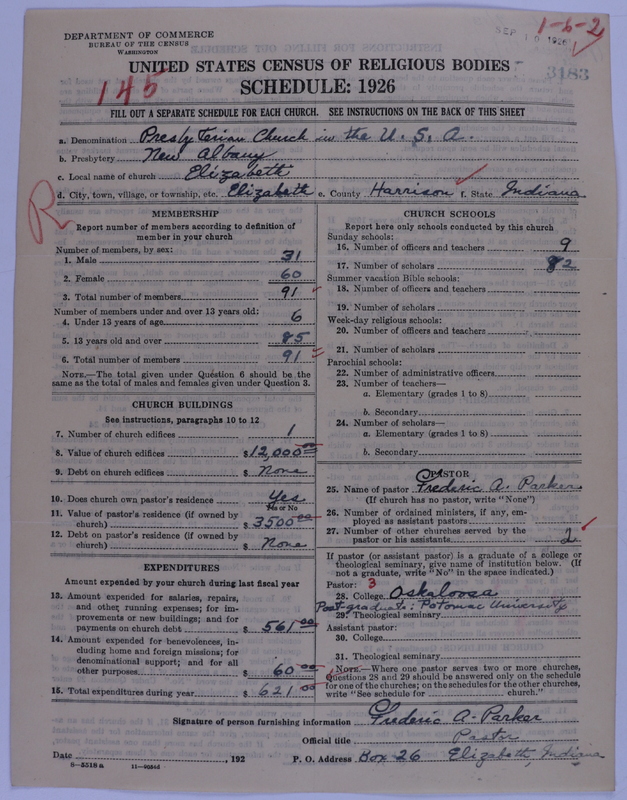 DEPARTMENT OF COMMERCE
BUREAU OF THE CENSUS
WASHINGTON
SEP 1926
1-6-2
3183
UNITED STATES CENSUS OF RELIGIOUS BODIES
145
SCHEDULE: 1926
FILL OUT A SEPARATE SCHEDULE FOR EACH CHURCH. SEE INSTRUCTIONS ON THE BACK OF THIS SHEET
a. Denomination Presbyterian Church in the U. S. A.
b. Presbytery New Albany
c. Local name of church Elizabeth
d. City, town, village, or township, etc. Elizabeth e. County Harrison f. State Indiana
R
MEMBERSHIP
Report number of members according to definition of
member in your church
Number of members, by sex:
1. Male 31
2. Female 60
3. Total number of members 91
Number of members under and over 13 years old:
4. Under 13 years of age 6
5. 13 years old and over 85
6. Total number of members 91
NOTE.—The total given under Question 6 should be the
same as the total of males and females given under Question 3.
CHURCH BUILDINGS
See instructions, paragraphs 10 to 12
7. Number of church edifices 1
8. Value of church edifices $ 12,000 00
9. Debt on church edifices $ None
10. Does church own pastor's residence Yes
Yes or No
11. Value of pastor's residence (if owned by
church) $ 3500 00
12. Debt on pastor's residence (if owned by
church) $ None
EXPENDITURES
Amount expended by your church during last fiscal year
13. Amount expended for salaries, repairs,
and other running expenses; for im-
provements or new buildings; and for
payments on church debt $ 561 00
14. Amount expended for benevolences, in-
cluding home and foreign missions; for
denominational support; and for all
other purposes $ 60 00
15. Total expenditures during year $ 621 00
CHURCH SCHOOLS
Report here only schools conducted by this church
Sunday schools:
16. Number of officers and teachers 9
17. Number of scholars 82
Summer vacation Bible schools:
18. Number of officers and teachers
19. Number of scholars
Week-day religious schools:
20. Number of officers and teachers
21. Number of scholars
Parochial schools:
22. Number of administrative officers
23. Number of teachers—
a. Elementary (grades 1 to 8)
b. Secondary
24. Number of scholars—
a. Elementary (grades 1 to 8)
b. Secondary
PASTOR
25. Name of pastor Frederic A. Parker
(If church has no pastor, write "None")
26. Number of ordained ministers, if any, em-
ployed as assistant pastors
27. Number of other churches served by the
pastor or his assistants 2
If pastor (or assistant pastor) is a graduate of a college or
theological seminary, give name of institution below. (If
not a graduate, write "No" in the space indicated.)
Pastor: 3
28. College Oskaloosa
Post-graduate: Potomac University
29. Theological seminary
Assistant pastor:
30. College
31. Theological seminary
NOTE.—Where one pastor serves two or more churches,
Questions 28 and 29 should be answered only on the schedule
for one of the churches; on the schedules for the other churches,
write "See schedule for church."
Signature of person furnishing information Frederic A. Parker
Official title Pastor
Date , 192 P. O. Address Box 26 Elizabeth, Indiana
8-5518a 11-90565